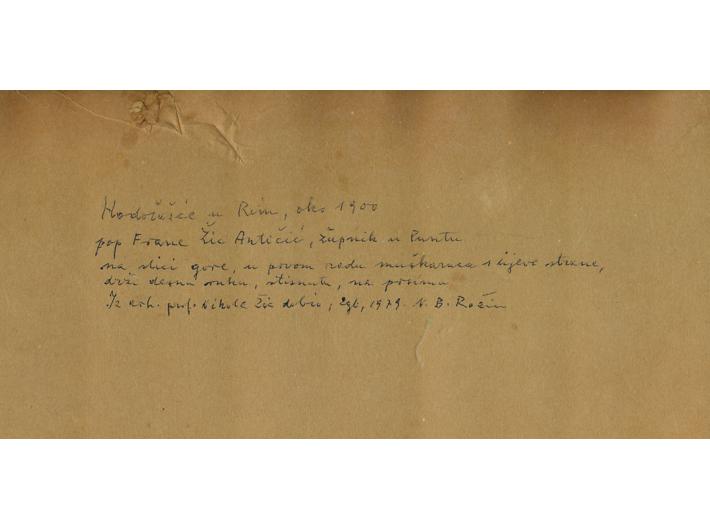 Hodočašće u Rim, oko 1900
pop Frane Žic Antičić, župnik u Puntu
na slici gore, u prvom redu muškaraca s lijeve strane,
drži desnu ruku, stisnutu, na prsima
Iz arh. prof. Nikole Žic dobio, Zgb, 1979. N. B. Rožin